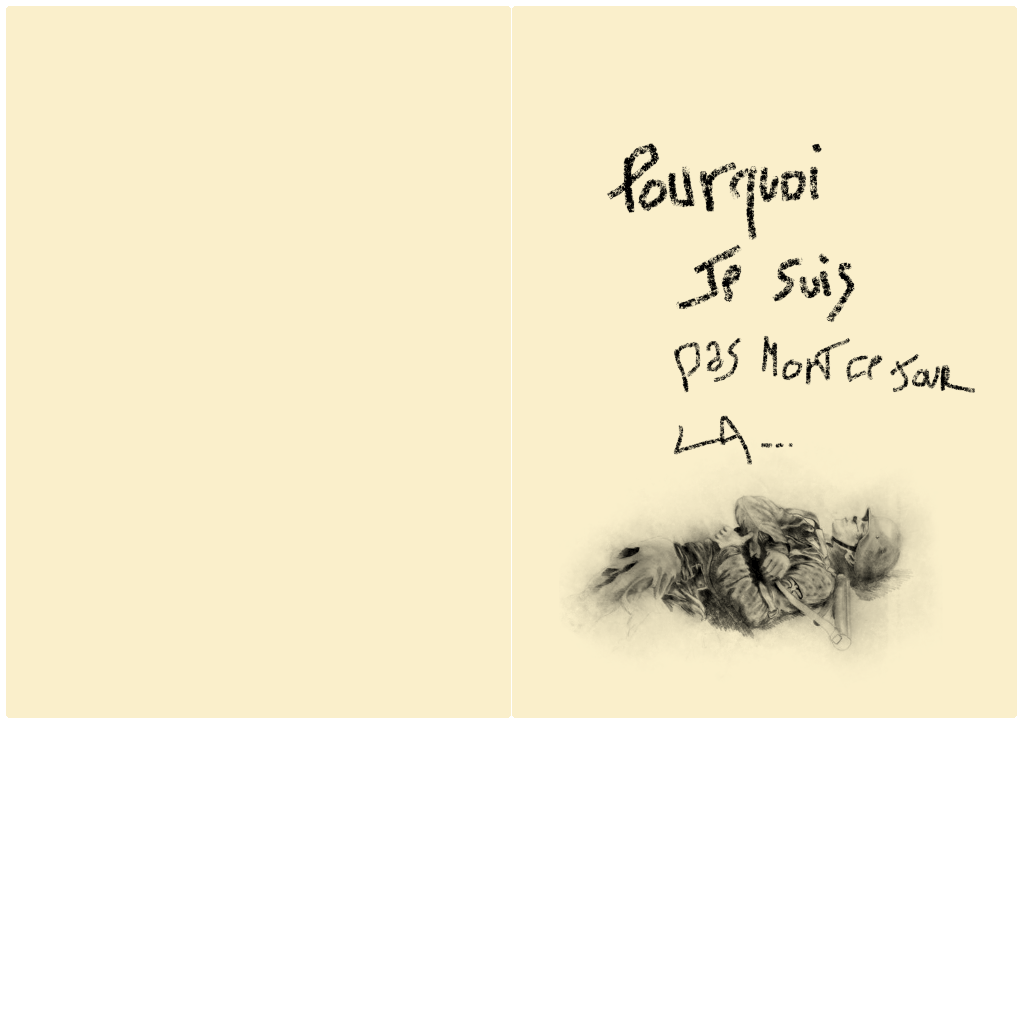 Pourquoi
Je suis
pas MORT ce JOUR
LA...